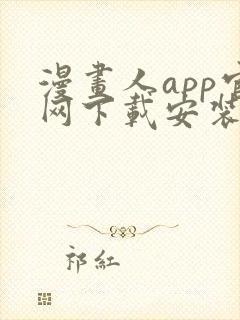 漫畫人app官
网下載安装
祁紅